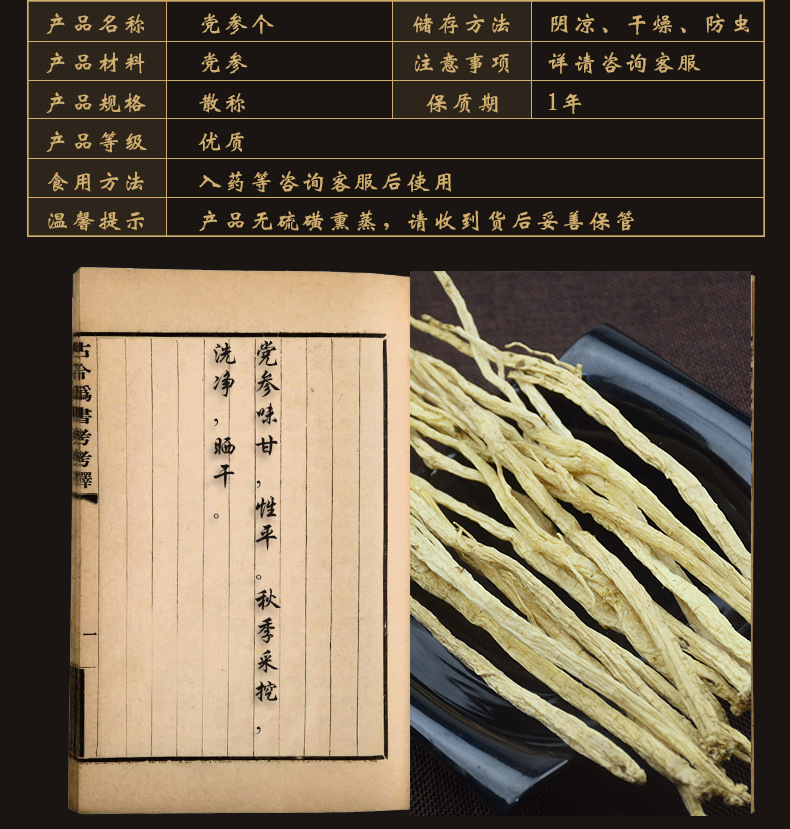 产品名称 党参个 储存方法 阴凉、干燥、防虫
产品材料 党参 注意事项 详请咨询客服
产品规格 散称 保质期 1年
产品等级 优质
食用方法 入药等咨询客服后使用
温馨提示 产品无硫磺熏蒸，请收到货后妥善保管
党参味甘，性平。秋季采挖，
洗净，晒干。
古今爲書考考釋
一